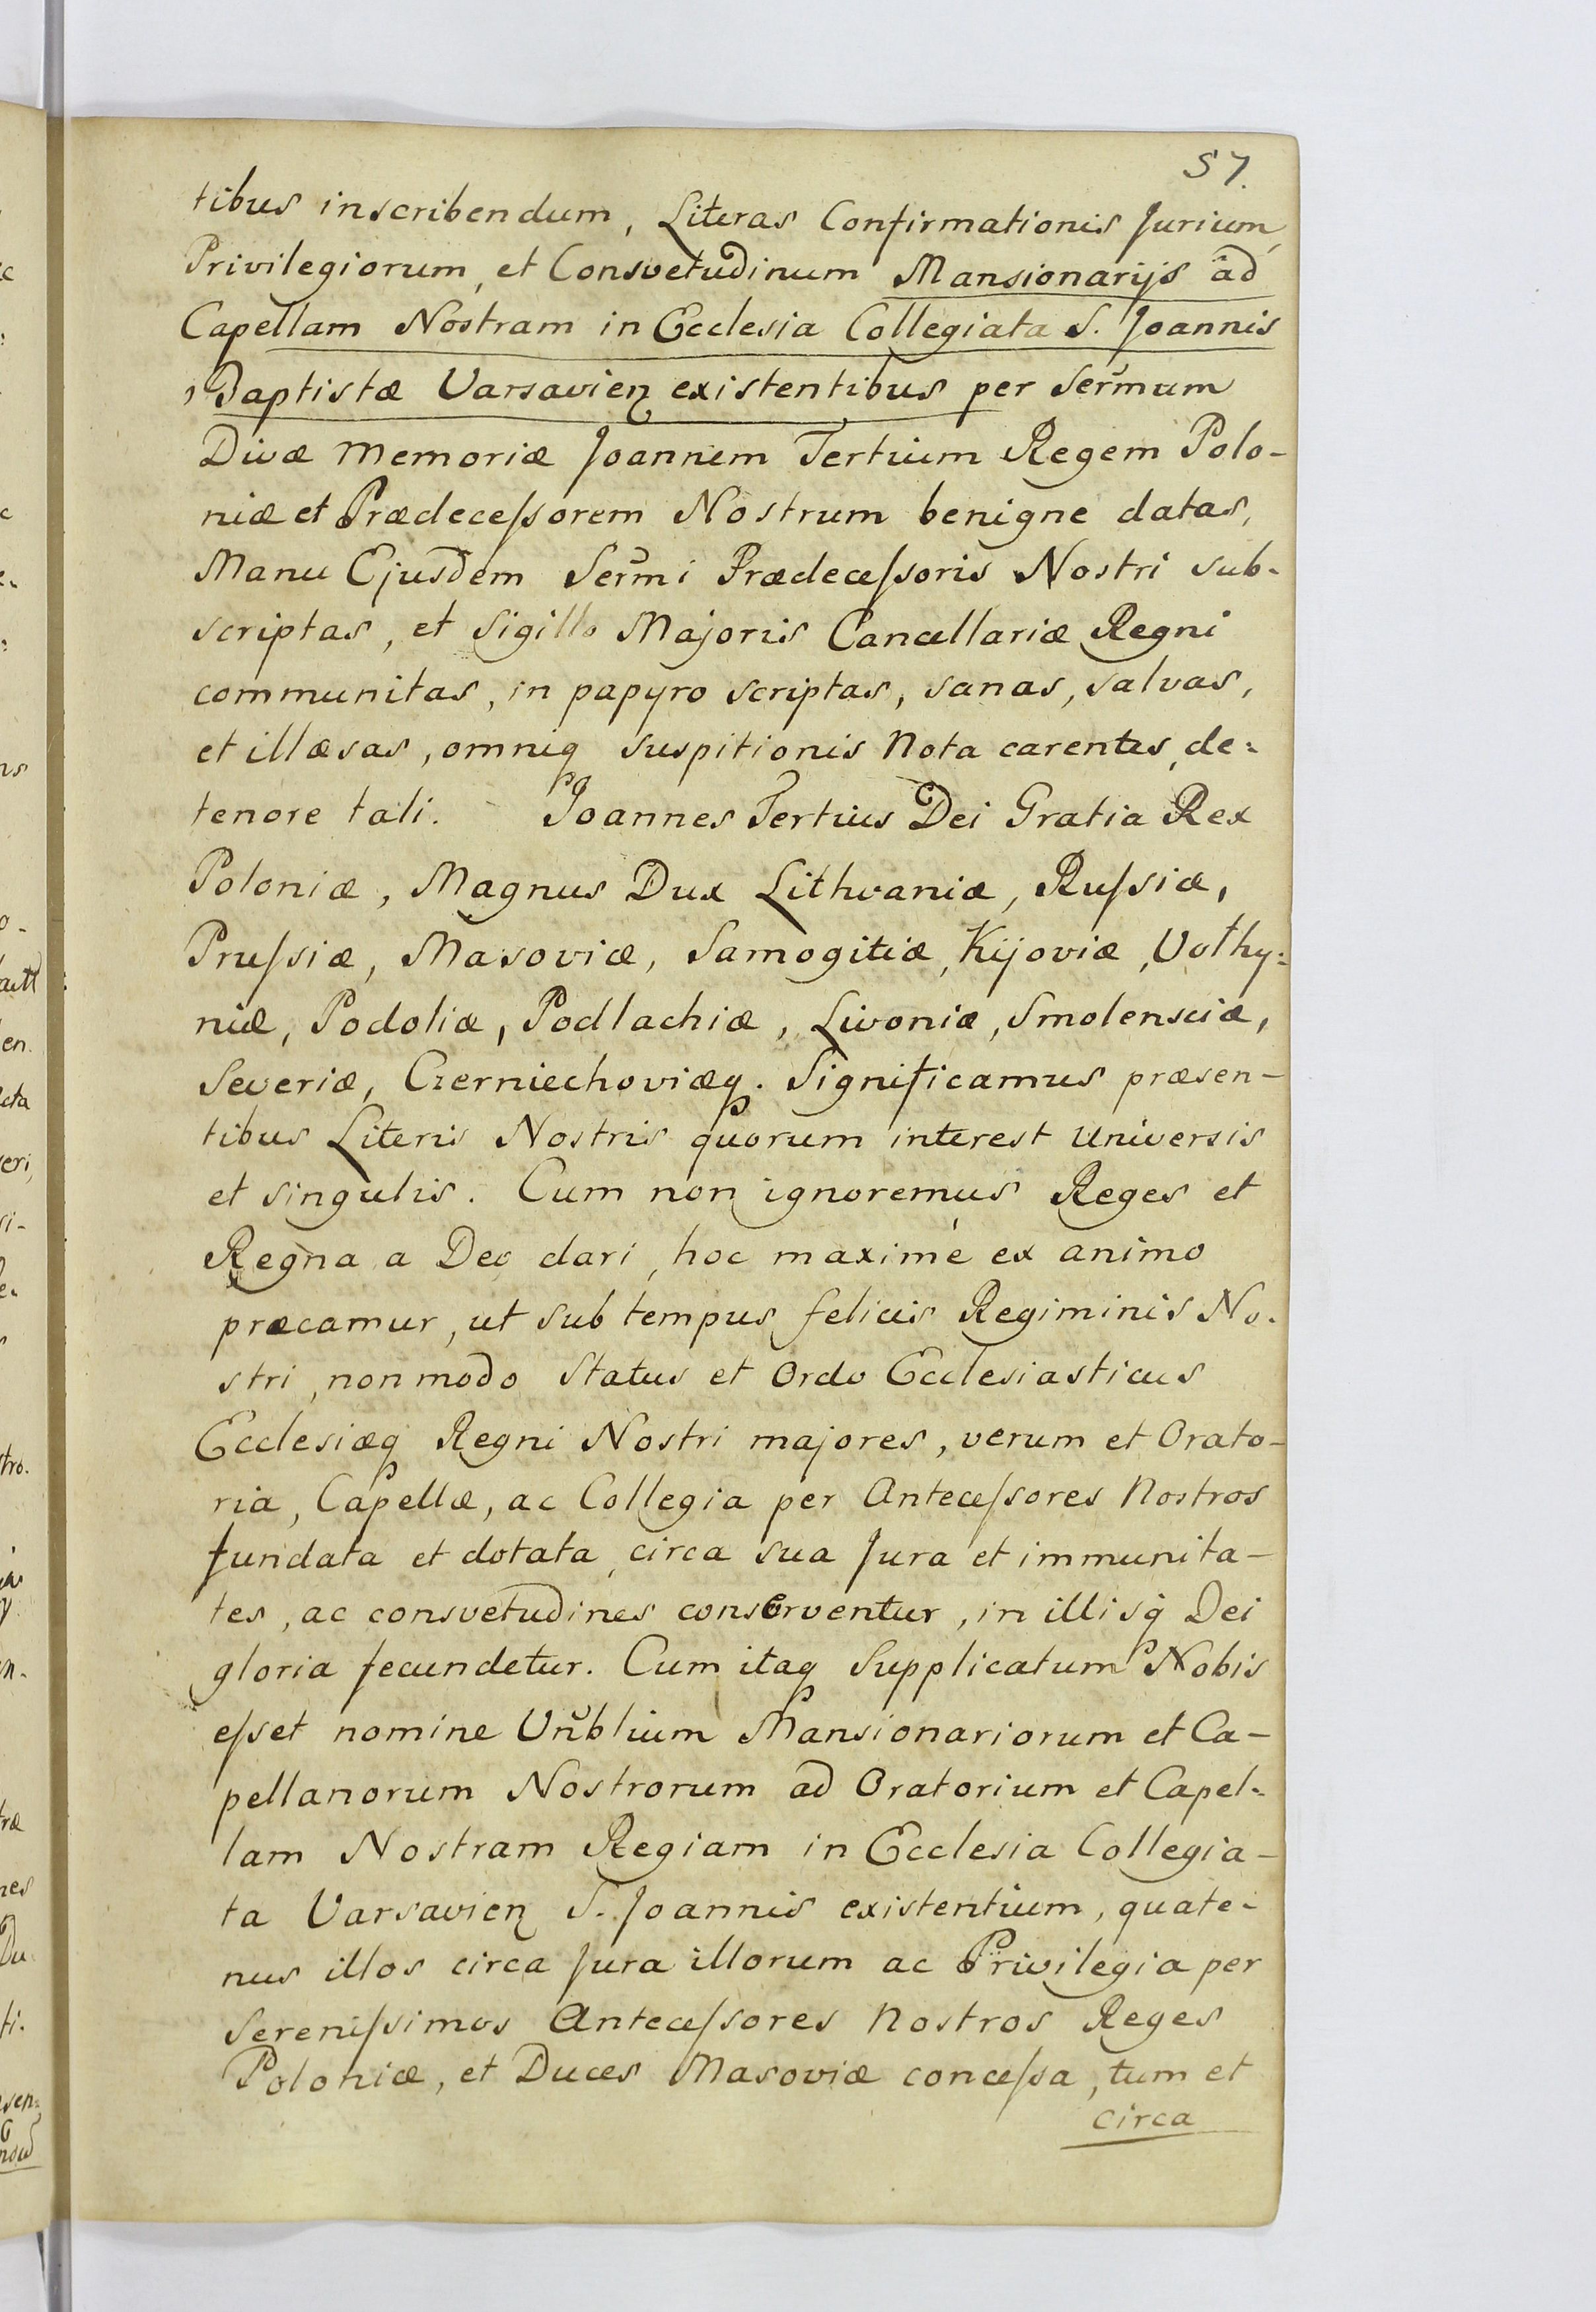 57.
tibus inscribendum, Literas Confirmationis Jurium,
Privilegiorum, et Consvetudinum Mansionarijs ad
Capellam Nostram in Ecclesia Collegiata S. Joannis
Baptistæ Varsavien existentibus per Sermum
Divæ Memoriæ Joannem Tertium Regem Polo-
niæ et Prædeceſsorem Nostrum benigne datas,
Manu Ejusdem Sermi Prædeceſsoris Nostri sub-
scriptas, et Sigillo Majoris Cancellariæ Regni
communitas, in papyro scriptas, sanas, salvas,
et illæsas, omniq suspitionis Nota carentes, de-
tenore tali. Joannes Tertius Dei Gratia Rex
Poloniæ, Magnus Dux Lithvaniæ, Ruſsiæ,
Pruſsiæ, Masoviæ, Samogitiæ, Kijoviæ, Volhy-
niæ, Podoliæ, Podlachiæ, Livoniæ, Smolensciæ,
Severiæ, Czerniechoviæq. Significamus præsen-
tibus Literis Nostris quorum interest Universis
et singulis. Cum non ignoremus Reges et
Regna a Deo dari, hoc maximé ex animo
præcamur, ut sub tempus felicis Regiminis No-
stri, non modo Status et Ordo Ecclesiasticus
Ecclesiæq Regni Nostri majores, verum et Orato-
ria, Capellæ, ac Collegia per Anteceſsores Nostros
fundata et dotata, circa sua Jura et immunita-
tes, ac consvetudines conserventur, in illisq Dei
gloria fecundetur. Cum itaq Supplicatum Nobis
eſset nomine Vnblium Mansionariorum et Ca-
pellanorum Nostrorum ad Oratorium et Capel-
lam Nostram Regiam in Ecclesia Collegia-
ta Varsavien S. Joannis existentium, quate-
nus illos circa Jura illorum ac Privilegia per
Sereniſsimos Anteceſsores Nostros Reges
Poloniæ, et Duces Masoviæ conceſsa, tum et
circa